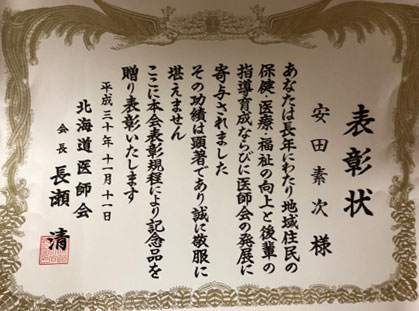 表彰状
安田素次様
あなたは長年にわたり地域住民の
保健・医療・福祉の向上と後輩の
指導育成ならびに医師会の発展に
寄与されました
その功績は顕著であり誠に敬服に
堪えません
ここに本会表彰規程により記念品を
贈り表彰いたします
平成三十年十一月十一日
北海道医師会
会長 長瀬清